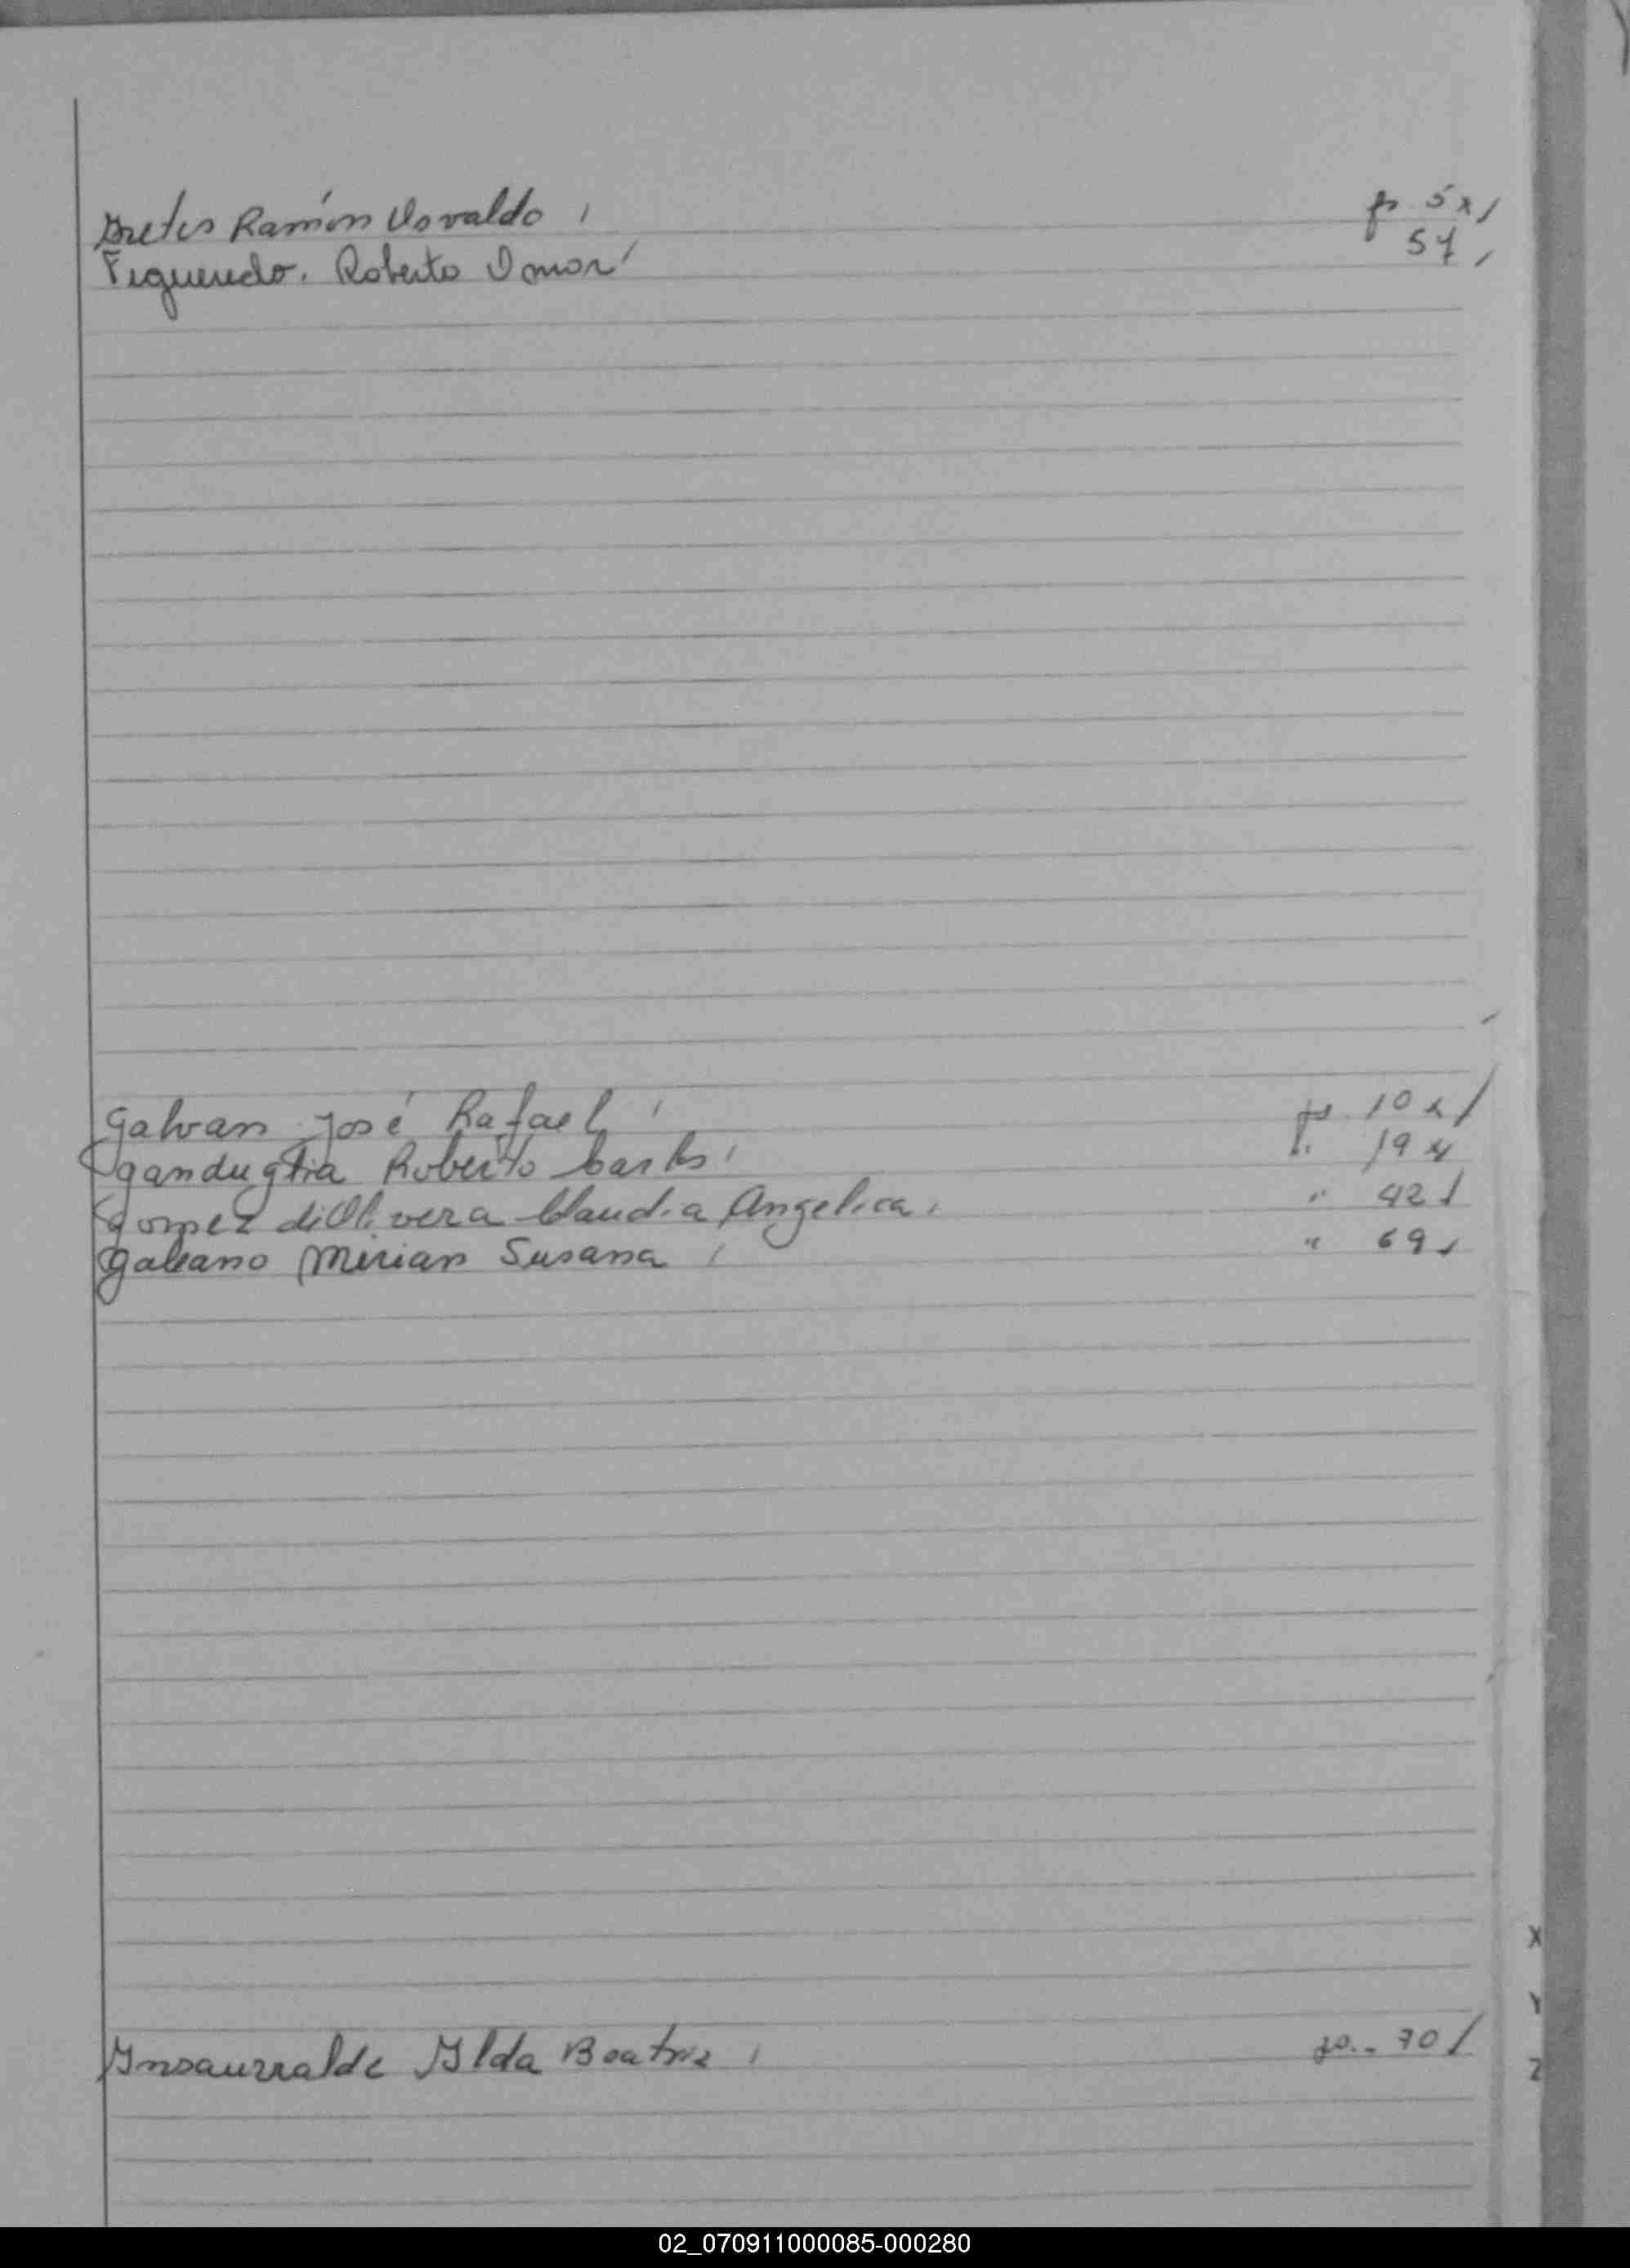 Ramón Osvaldo fs 5 x/
Figueredo. Roberto Omar 57
Galvan José Rafael fs 10 x/
Ganduglia Roberto Carlos " 19 x
Gomez diOlivera Claudia Angelica. " 42
Galeano Mirian Susana " 69
X
Y
Insaurralde Ylda Beatriz fs.. 70/
Z
02_070911000085-000280